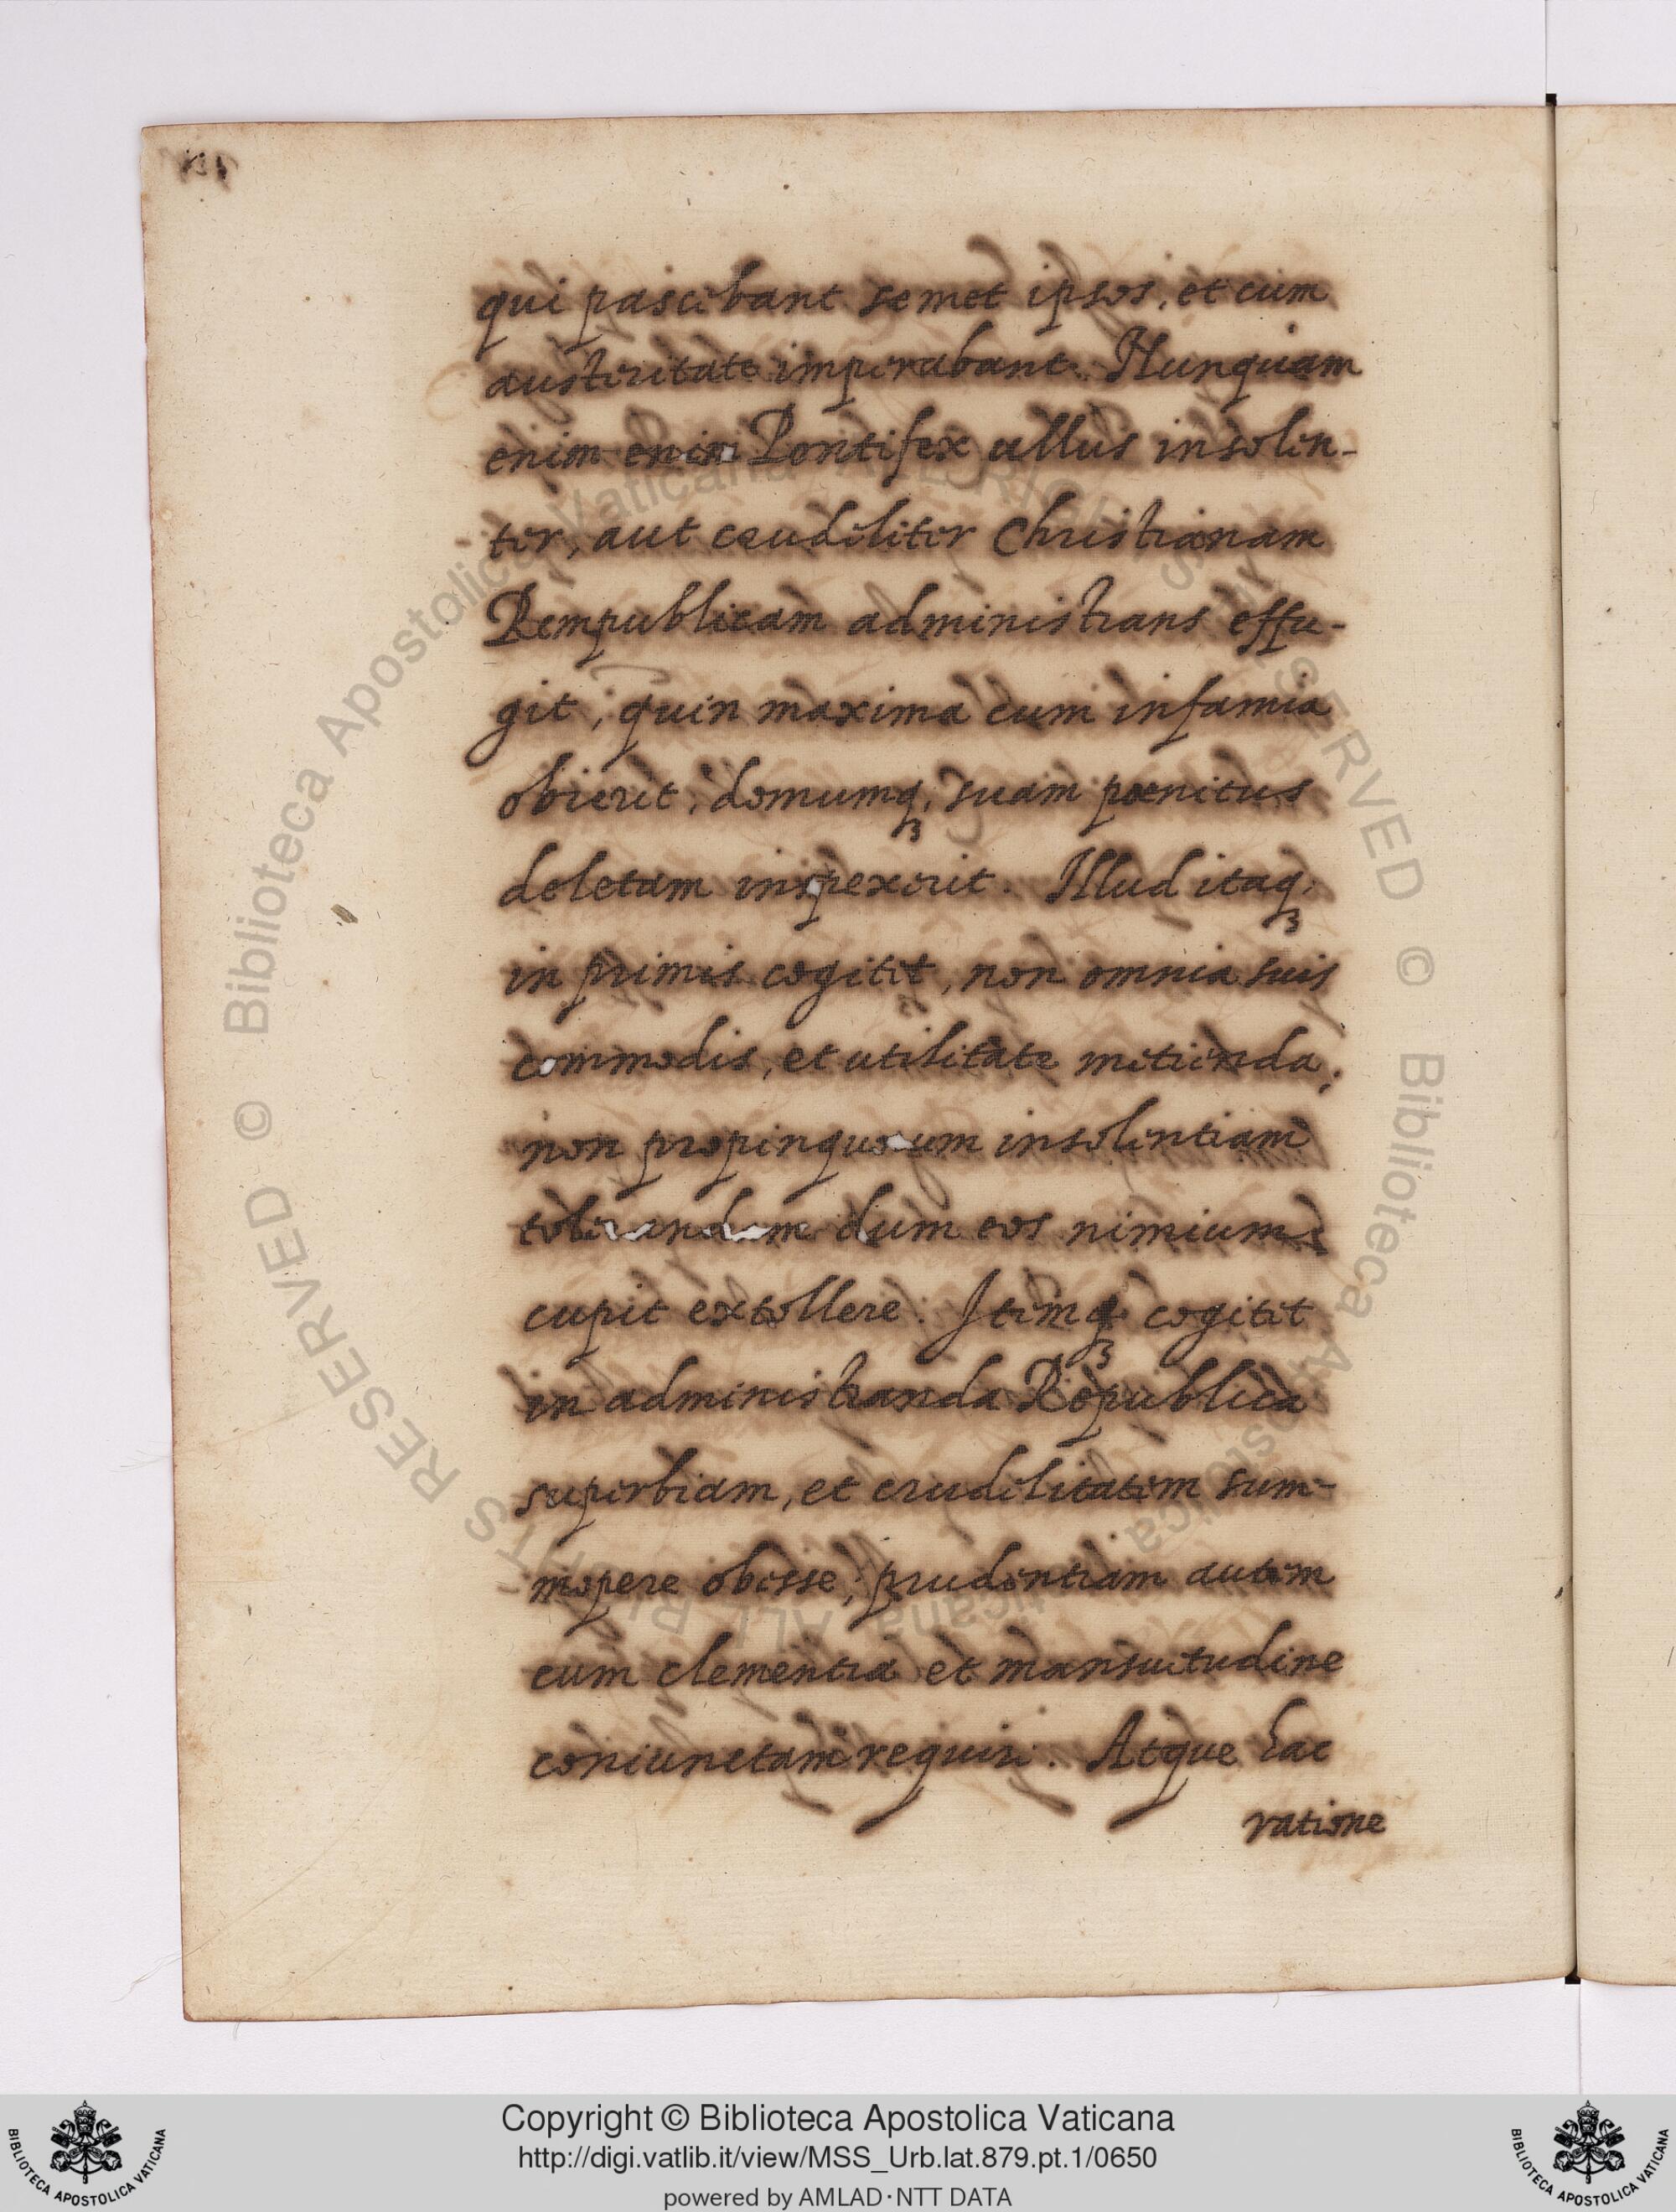 qui pascebant semet ipsos, et cum
austeritate imperabant. Nunquam
enim enim Pontifex ullus insolen-
ter, aut crudeliter Christianam
Rempublicam administrans effu-
git, quin maxima cum infamia
obierit, domumq; suam poenitus
deletam inspexerit. Illud itaq;
in primis cogitet, non omnia suis
commodis, et utilitate metienda;
non propinquorum insolentiam
tolerandam dum eos nimium
cupit extollere. Itemq; cogitet
in administranda Republica
superbiam, et crudelitatem sum-
mopere obesse; prudentiam autem
cum clementia et mansuetudine
coniunctam requiri. Atque hac
ratione
© Biblioteca Apostolica Vaticana ALL RIGHTS RESERVED © Biblioteca Apostolica Vaticana ALL RIGHTS RESERVED
Copyright © Biblioteca Apostolica Vaticana
http://digi.vatlib.it/view/MSS_Urb.lat.879.pt.1/0650
powered by AMLAD·NTT DATA
BIBLIOTECA APOSTOLICA VATICANA
BIBLIOTECA APOSTOLICA VATICANA